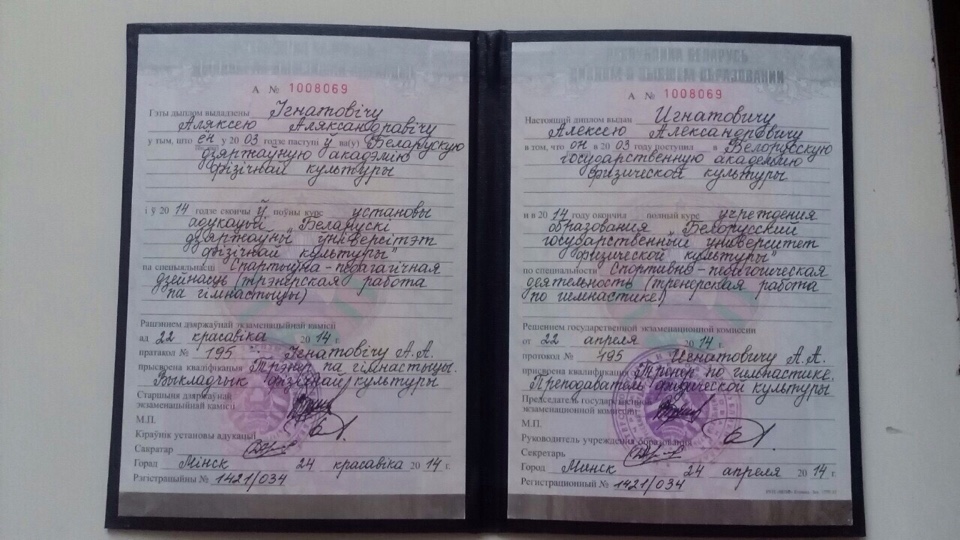 А № 1008069
Гэты дыплом выдадзены Ігнатовічу
Аляксею Аляксандравічу
у тым, што ён у 2003 годзе паступіў ва(у) Беларускую
дзяржаўную акадэмію
фізічнай культуры
і ў 2014 годзе скончыў поўны курс установы
адукацыі „Беларускі
дзяржаўны універсітэт
фізічнай культуры"
па спецыяльнасці Спартыўна-педагагічная
дзейнасць (трэнерская работа
па гімнастыцы)
Рашэннем дзяржаўнай экзаменацыйнай камісіі
ад 22 красавіка 2014 г.
пратакол № 195 Ігнатовічу А.А.
прысвоена кваліфікацыя Трэнер па гімнастыцы.
Выкладчык фізічнай культуры
Старшыня дзяржаўнай
экзаменацыйнай камісіі
М.П.
Кіраўнік установы адукацыі
Сакратар
Горад Мінск 24 красавіка 2014 г.
Рэгістрацыйны № 1421/034
А № 1008069
Настоящий диплом выдан Игнатовичу
Алексею Александровичу
в том, что он в 2003 году поступил в Белорусскую
государственную академию
физической культуры
и в 2014 году окончил полный курс учреждения
образования „Белорусский
государственный университет
физической культуры"
по специальности Спортивно-педагогическая
деятельность (тренерская работа
по гимнастике)
Решением государственной экзаменационной комиссии
от 22 апреля 2014 г.
протокол № 195 Игнатовичу А.А.
присвоена квалификация Тренер по гимнастике.
Преподаватель физической культуры
Председатель государственной
экзаменационной комиссии
М.П.
Руководитель учреждения образования
Секретарь
Город Минск 24 апреля 2014 г.
Регистрационный № 1421/034